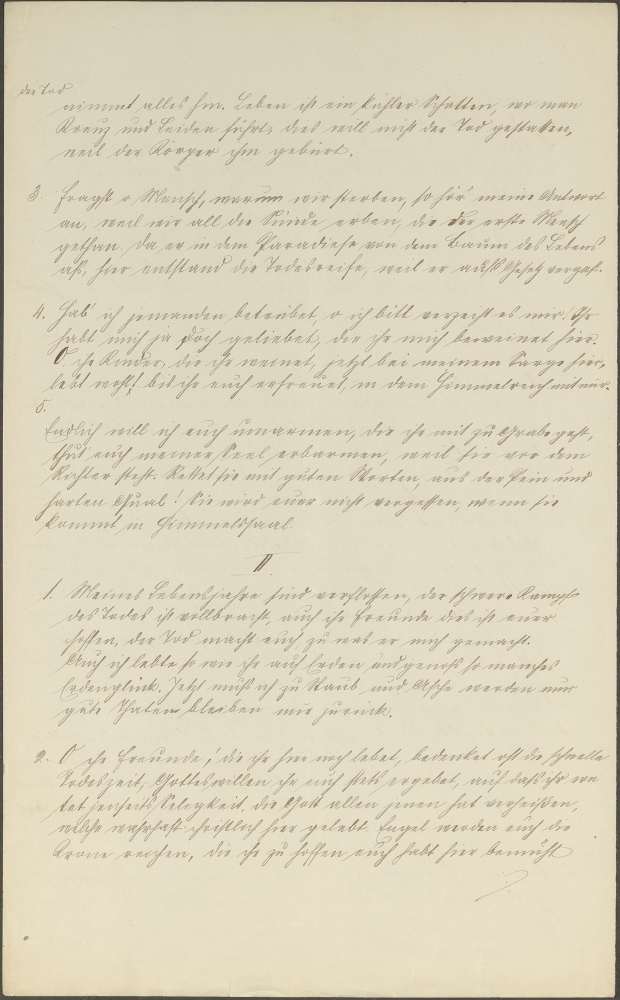 der Tod
nimmt alles hin. Leben ist ein kühler Schatten, wo man
Kreuz und Leiden führt, dies will mich der Tod gestatten,
weil der Körper ihm gebürt.
3. Fragst o Mensch, warum wir sterben, so hör meine Antwort
an, weil wir all die Sünde erben, die der erste Mensch
gethan, da er in dem Paradiese von dem Baum des Lebens
aß, hier entstand die Todesreise, weil er Gesetz vergaß.
4. Hab' ich jemanden betrübet, o ich bitt verzeiht es mir. Ihr
habt mich ja doch geliebet, die ihr mich beweinet hier.
O ihr Kinder, die ihr weinet, jetzt bei meinem Sarge hier,
lebt wohl, bis ihr euch erfreuet, in dem Himmelreich mit mir.
5.
Endlich will ich euch umarmen, die ihr mit zu Grabe geht,
thut euch meiner Seel erbarmen, weil sie vor dem
Richter steht. Rettet sie mit guten Worten, aus der Pein und
harten Qual! Sie wird euer nicht vergessen, wenn sie
kommt in Himmelssaal
II
1. Meines Lebensjahre sind verflossen, der schwere Kampf
des Todes ist vollbracht, auch ihr Freunde dies ist euer
hoffen, der Tod macht euch zu was er mich gemacht.
Auch ich lebte so wie ihr auf Erden und genoß so manches
Erdenglück. Jetzt muß ich zu Staub und Asche werden nur
gute Thaten bleiben mir zurück.
2. O ihr Freunde! die ihr hier noch lebet, bedenket oft die schnelle
Todeszeit, Gotteswillen ihr euch stets ergebet, auf daß ihr
jenseits Seligkeit, die Gott allen jenen hat verheißen,
welche wahrhaft christlich hier gelebt. Engel werden euch die
Krone reichen, die ihr zu hoffen euch habt hier bemüht